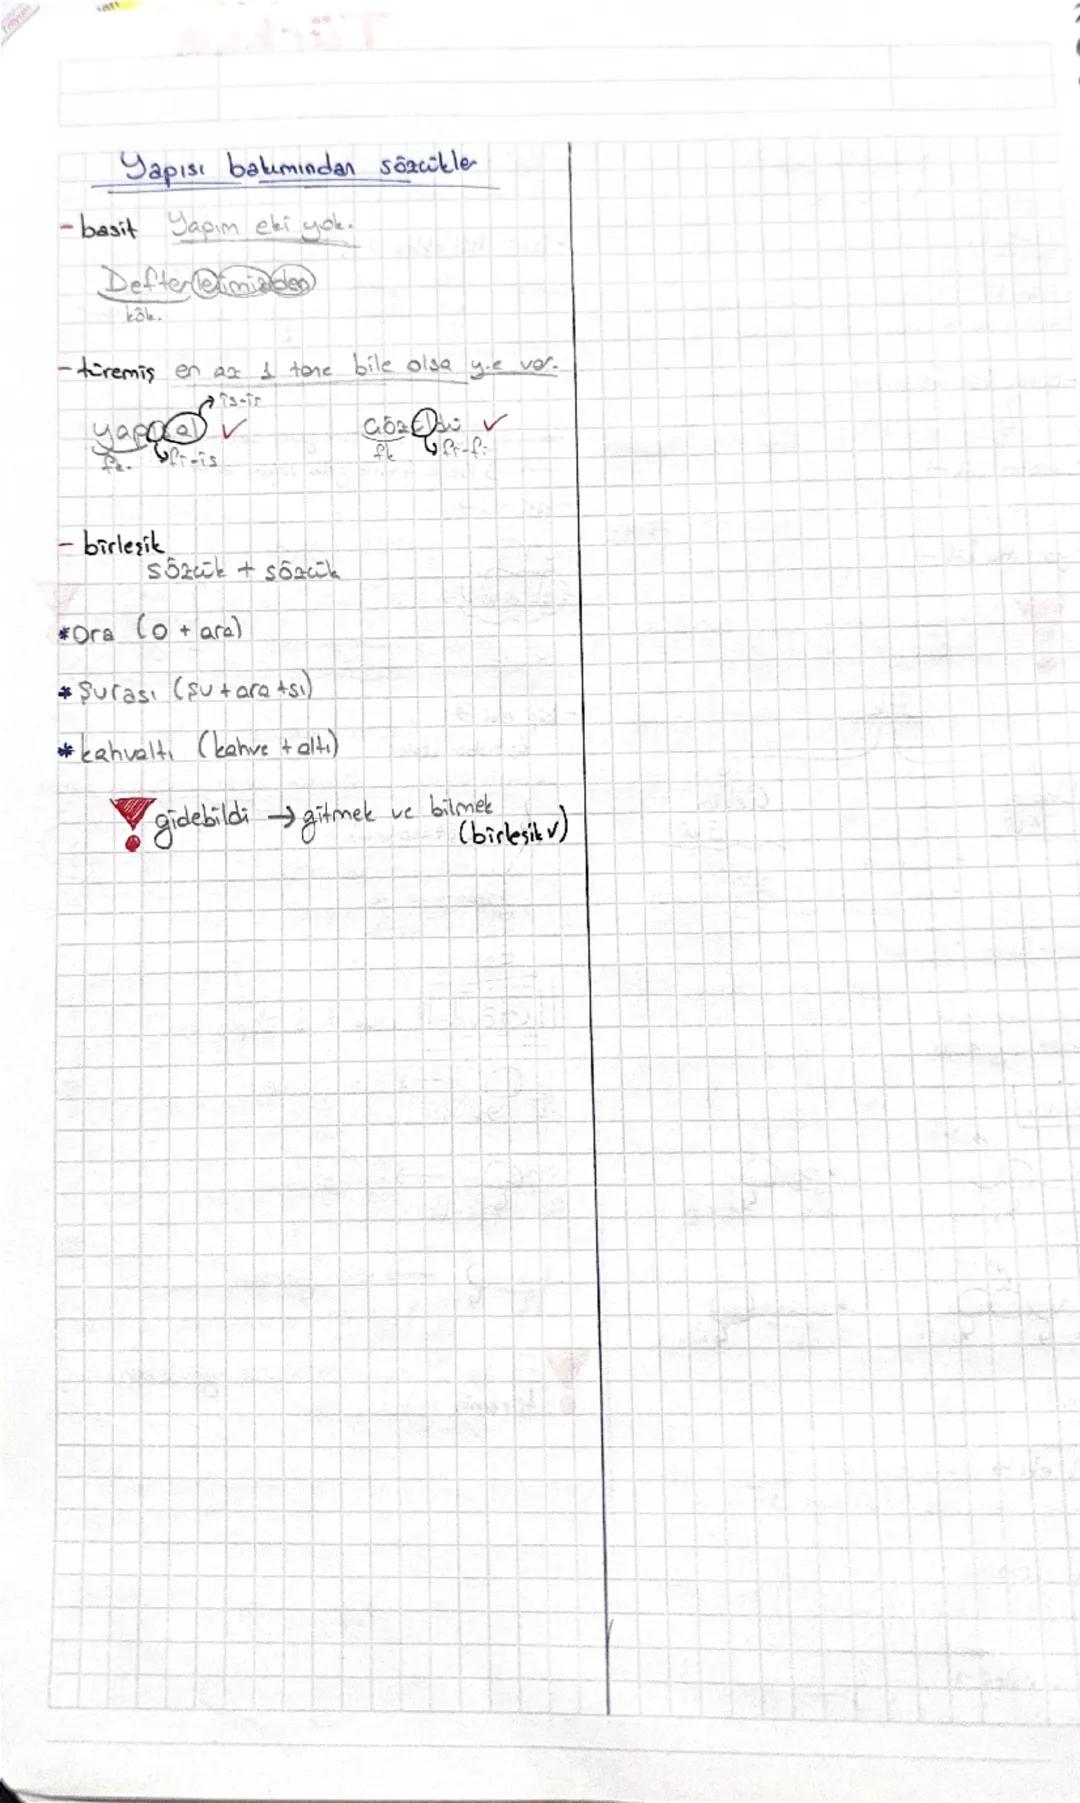 Yapısı bakımından sözcükler
- basit Yapım eki yok.
Defterlerimizden
kök.
- türemiş en az 1 tane bile olsa y.e var.
is-is
yapısal ✓ Çözüldü ✓
fk. fi-is fk fi-fi
- birleşik
sözcük + sözcük
*Ora (o + ara)
* Şurası (şu + ara + sı)
* kahvaltı (kahve + altı)
gidebildi → gitmek ve bilmek
(birleşik ✓)